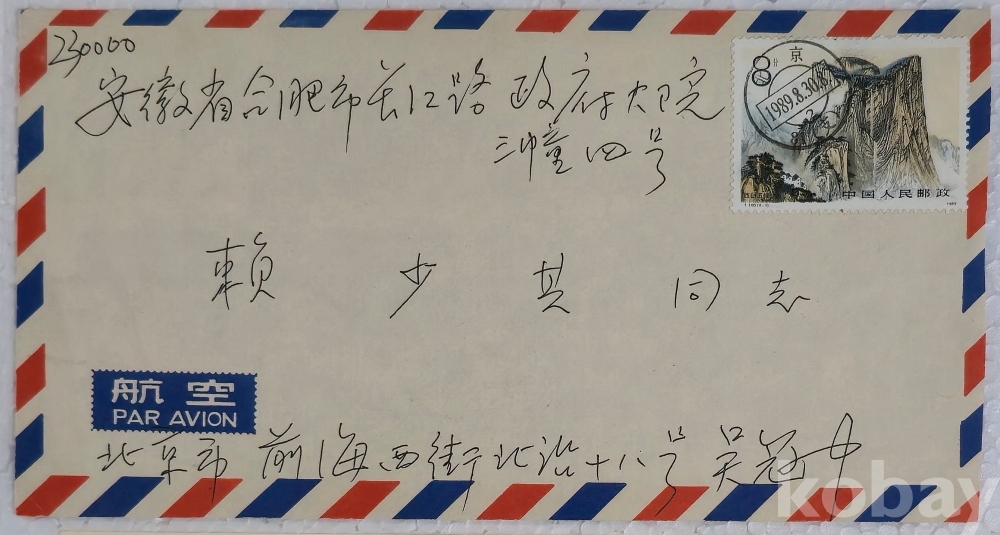 230000
安徽省合肥市长江路政府大院
三幢四号
8分
京
1989.8.30
中国人民邮政
賴少其同志
航空
PAR AVION
北京市前海西街北沿十八号吴冠中
kobay